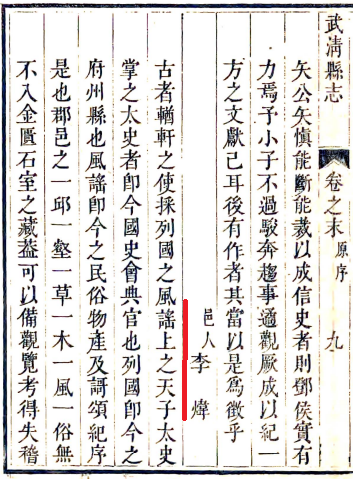 武淸縣志
卷之末
原序
九
矢公矢愼能斷能裁以成信史者則鄧侯實有
力焉予小子不過駿奔趨事適觀厥成以紀一
方之文獻已耳後有作者其當以是爲徵乎
邑人李煒
古者輶軒之使採列國之風謠上之天子太史
掌之太史者卽今國史會典官也列國卽今之
府州縣也風謠卽今之民俗物產及謌頌紀序
是也郡邑之一邱一壑一草一木一風一俗無
不入金匱石室之藏葢可以備觀覽考得失稽